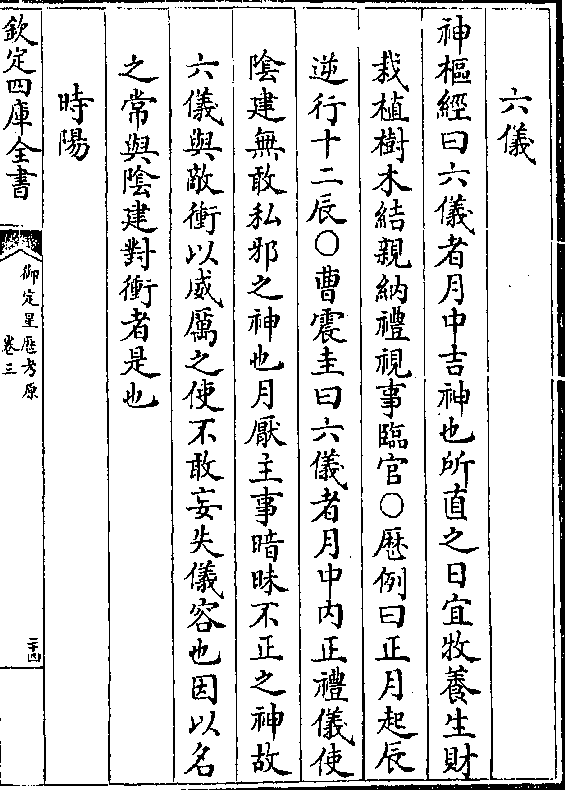 六儀
神樞經曰六儀者月中吉神也所直之日宜牧養生財
栽植樹木結親納禮視事臨官○厯例曰正月起辰
逆行十二辰○曹震圭曰六儀者月中内正禮儀使
陰建無敢私邪之神也月厭主事暗昧不正之神故
六儀與敵衝以威厲之使不敢妄失儀容也因以名
之常與陰建對衝者是也
時陽
欽定四庫全書
御定星厯考原
卷三
二十四